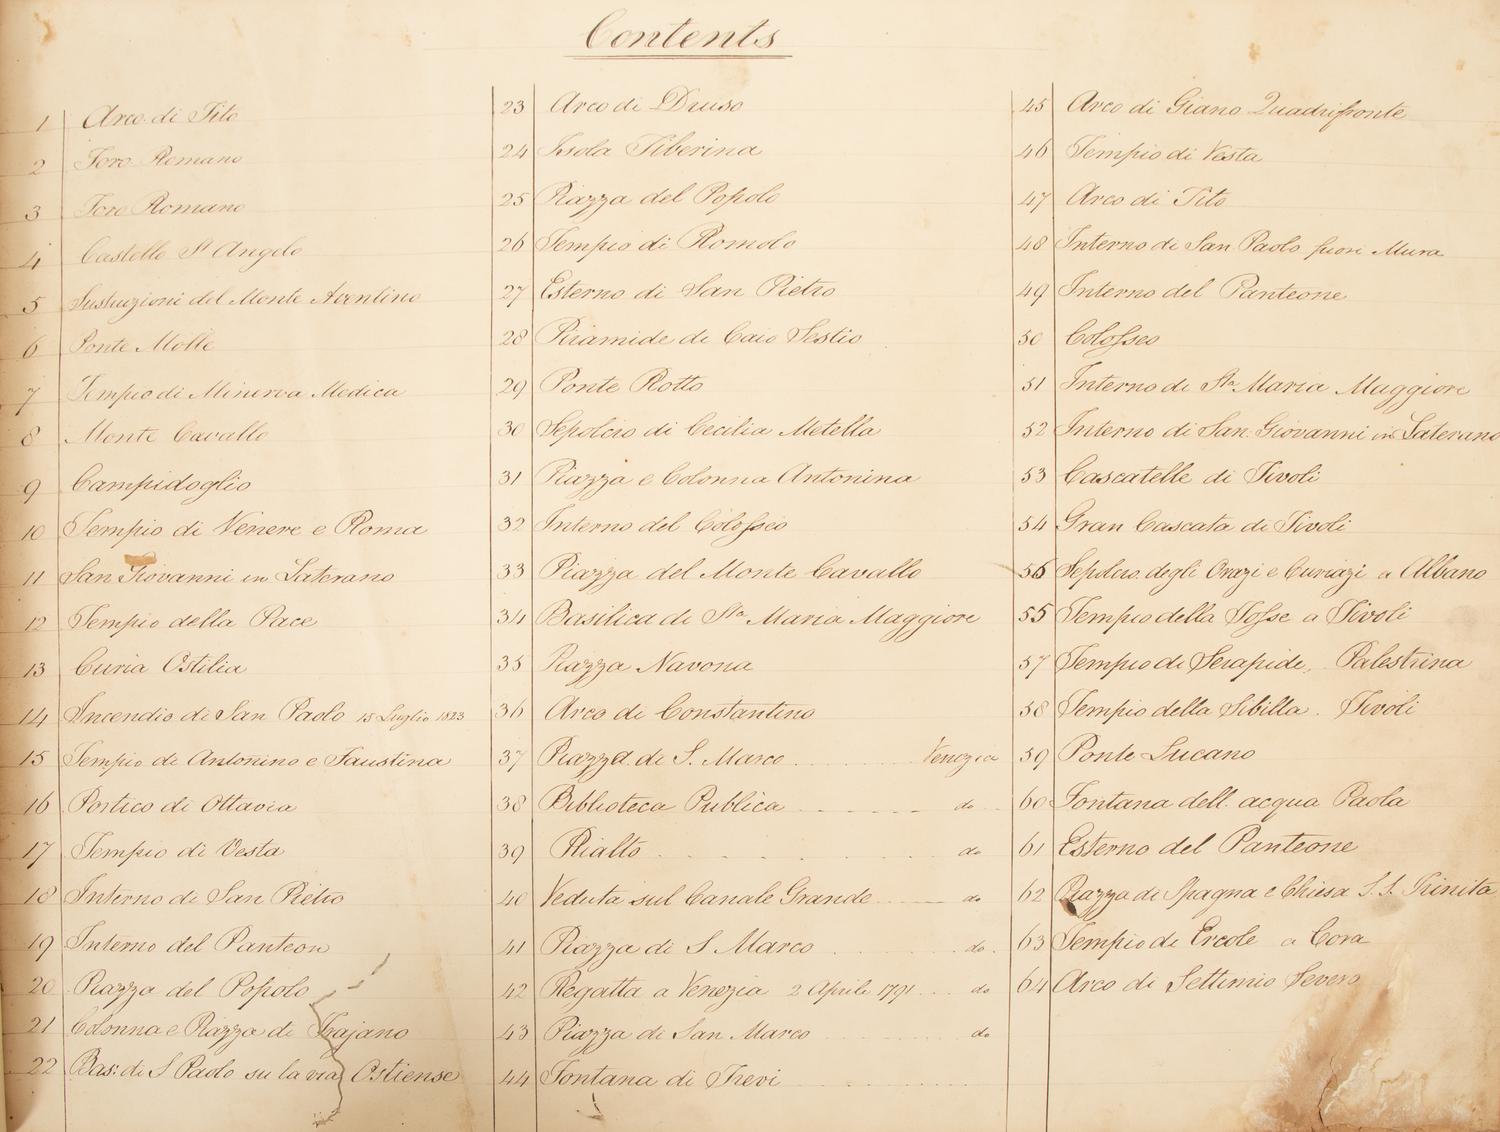 Contents
1 Arco di Tito
2 Foro Romano
3 Foro Romano
4 Castello St Angelo
5 Sustruzioni del Monte Aventino
6 Ponte Molle
7 Tempio di Minerva Medica
8 Monte Cavallo
9 Campidoglio
10 Tempio di Venere e Roma
11 San Giovanni in Laterano
12 Tempio della Pace
13 Curia Ostilia
14 Incendio di San Paolo 15 Luglio 1823
15 Tempio di Antonino e Faustina
16 Portico di Ottavia
17 Tempio di Vesta
18 Interno di San Pietro
19 Interno del Panteon
20 Piazza del Popolo
21 Colonna e Piazza di Trajano
22 Bas: di S Paolo su la via Ostiense
23 Arco di Druso
24 Isola Tiberina
25 Piazza del Popolo
26 Tempio di Romolo
27 Esterno di San Pietro
28 Piramide di Caio Sestio
29 Ponte Rotto
30 Sepolcro di Cecilia Metella
31 Piazza e Colonna Antonina
32 Interno del Colosseo
33 Piazza del Monte Cavallo
34 Basilica di Sta Maria Maggiore
35 Piazza Navona
36 Arco di Constantino
37 Piazza di S. Marco Venezia
38 Biblioteca Publica do
39 Rialto do
40 Veduta sul Canale Grande do
41 Piazza di S Marco do.
42 Regatta a Venezia 2 Aprile 1791 do
43 Piazza di San Marco do
44 Fontana di Trevi
45 Arco di Giano Quadrifronte
46 Tempio di Vesta
47 Arco di Tito
48 Interno di San Paolo fuori Mura
49 Interno del Panteone
50 Colosseo
51 Interno di Sta Maria Maggiore
52 Interno di San Giovanni in Laterano
53 Cascatelle di Tivoli
54 Gran Cascata di Tivoli
56 Sepolcro degli Orazi e Curiazi a Albano
55 Tempio della Tosse a Tivoli
57 Tempio di Serapide, Palestrina
58 Tempio della Sibilla. Tivoli
59 Ponte Lucano
60 Fontana dell. acqua Paola
61 Esterno del Panteone
62 Piazza di Spagna e Chiesa S.S. Trinita
63 Tempio di Ercole a Cora
64 Arco di Settimio Severo